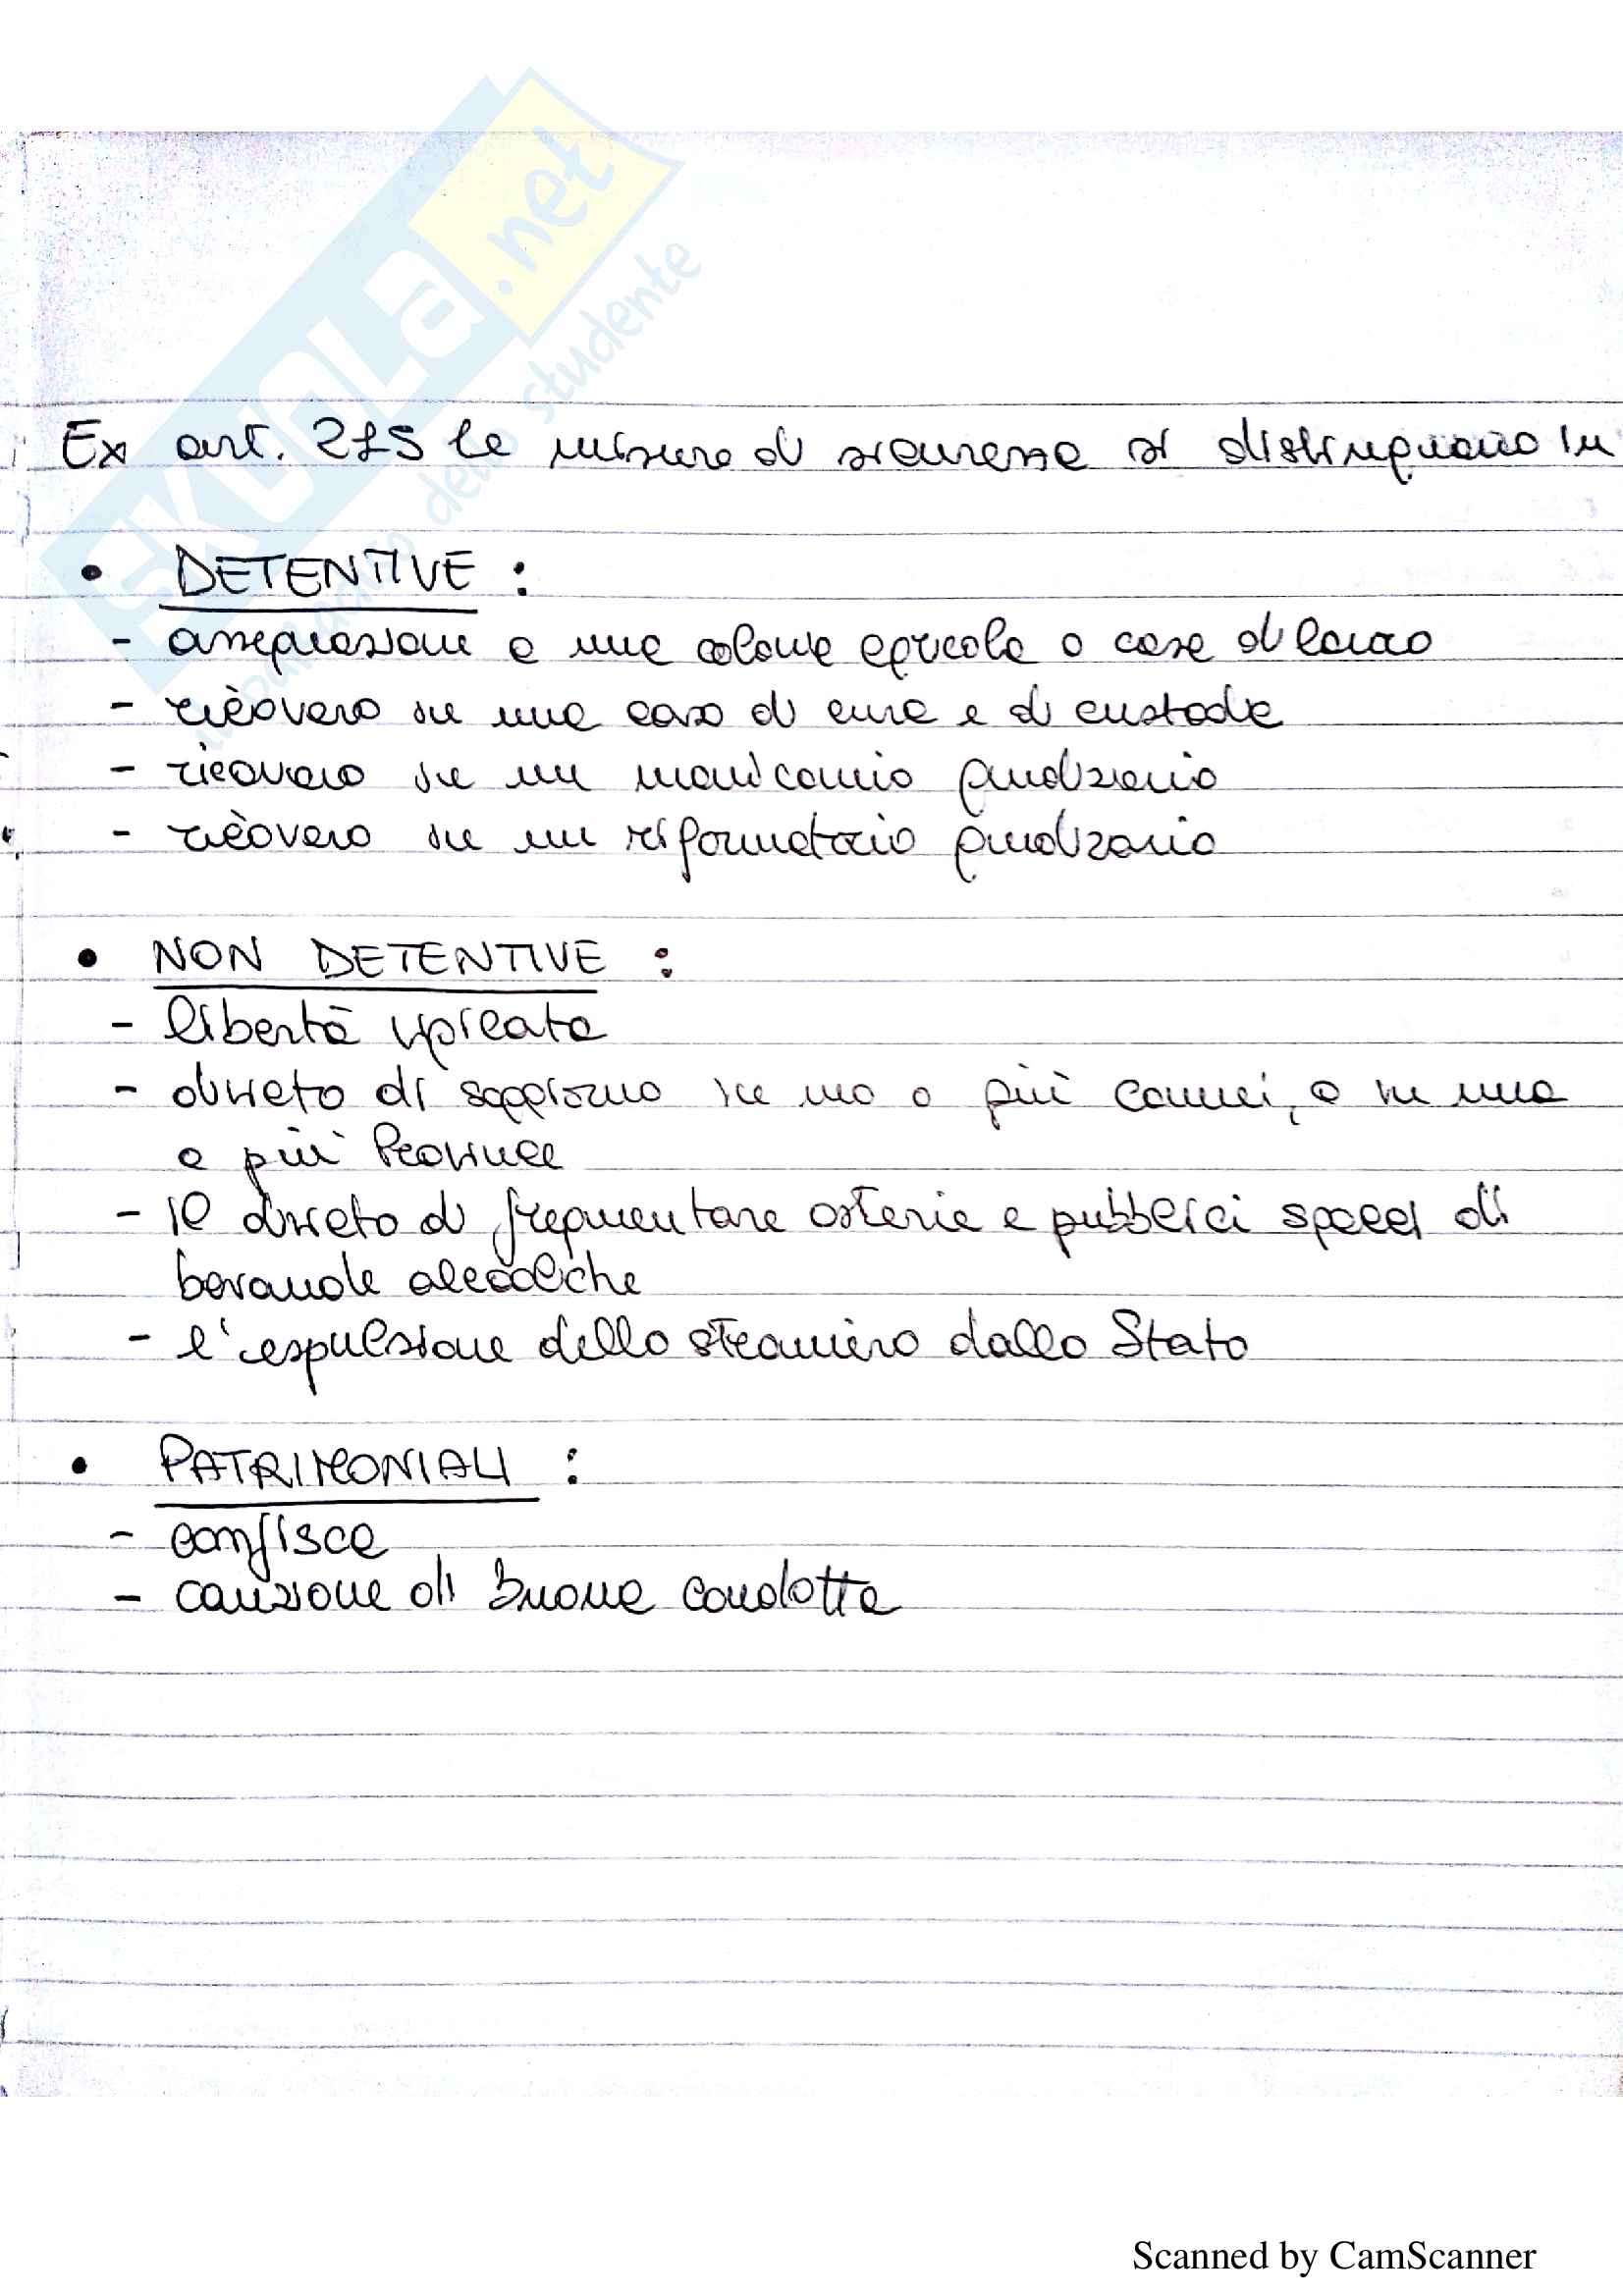 SKUOLA.net
il paradiso dello studente
Ex art. 215 le misure di sicurezza si distinguono in
• DETENTIVE :
- assegnazione a una colonia agricola o casa di lavoro
- ricovero in una casa di cura e di custodia
- ricovero in un manicomio giudiziario
- ricovero in un riformatorio giudiziario
• NON DETENTIVE :
- libertà vigilata
- divieto di soggiorno in uno o più comuni, o in una
o più Province
- il divieto di frequentare osterie e pubblici spacci di
bevande alcooliche
- l'espulsione dello straniero dallo Stato
• PATRIMONIALI :
- confisca
- cauzione di buona condotta
Scanned by CamScanner